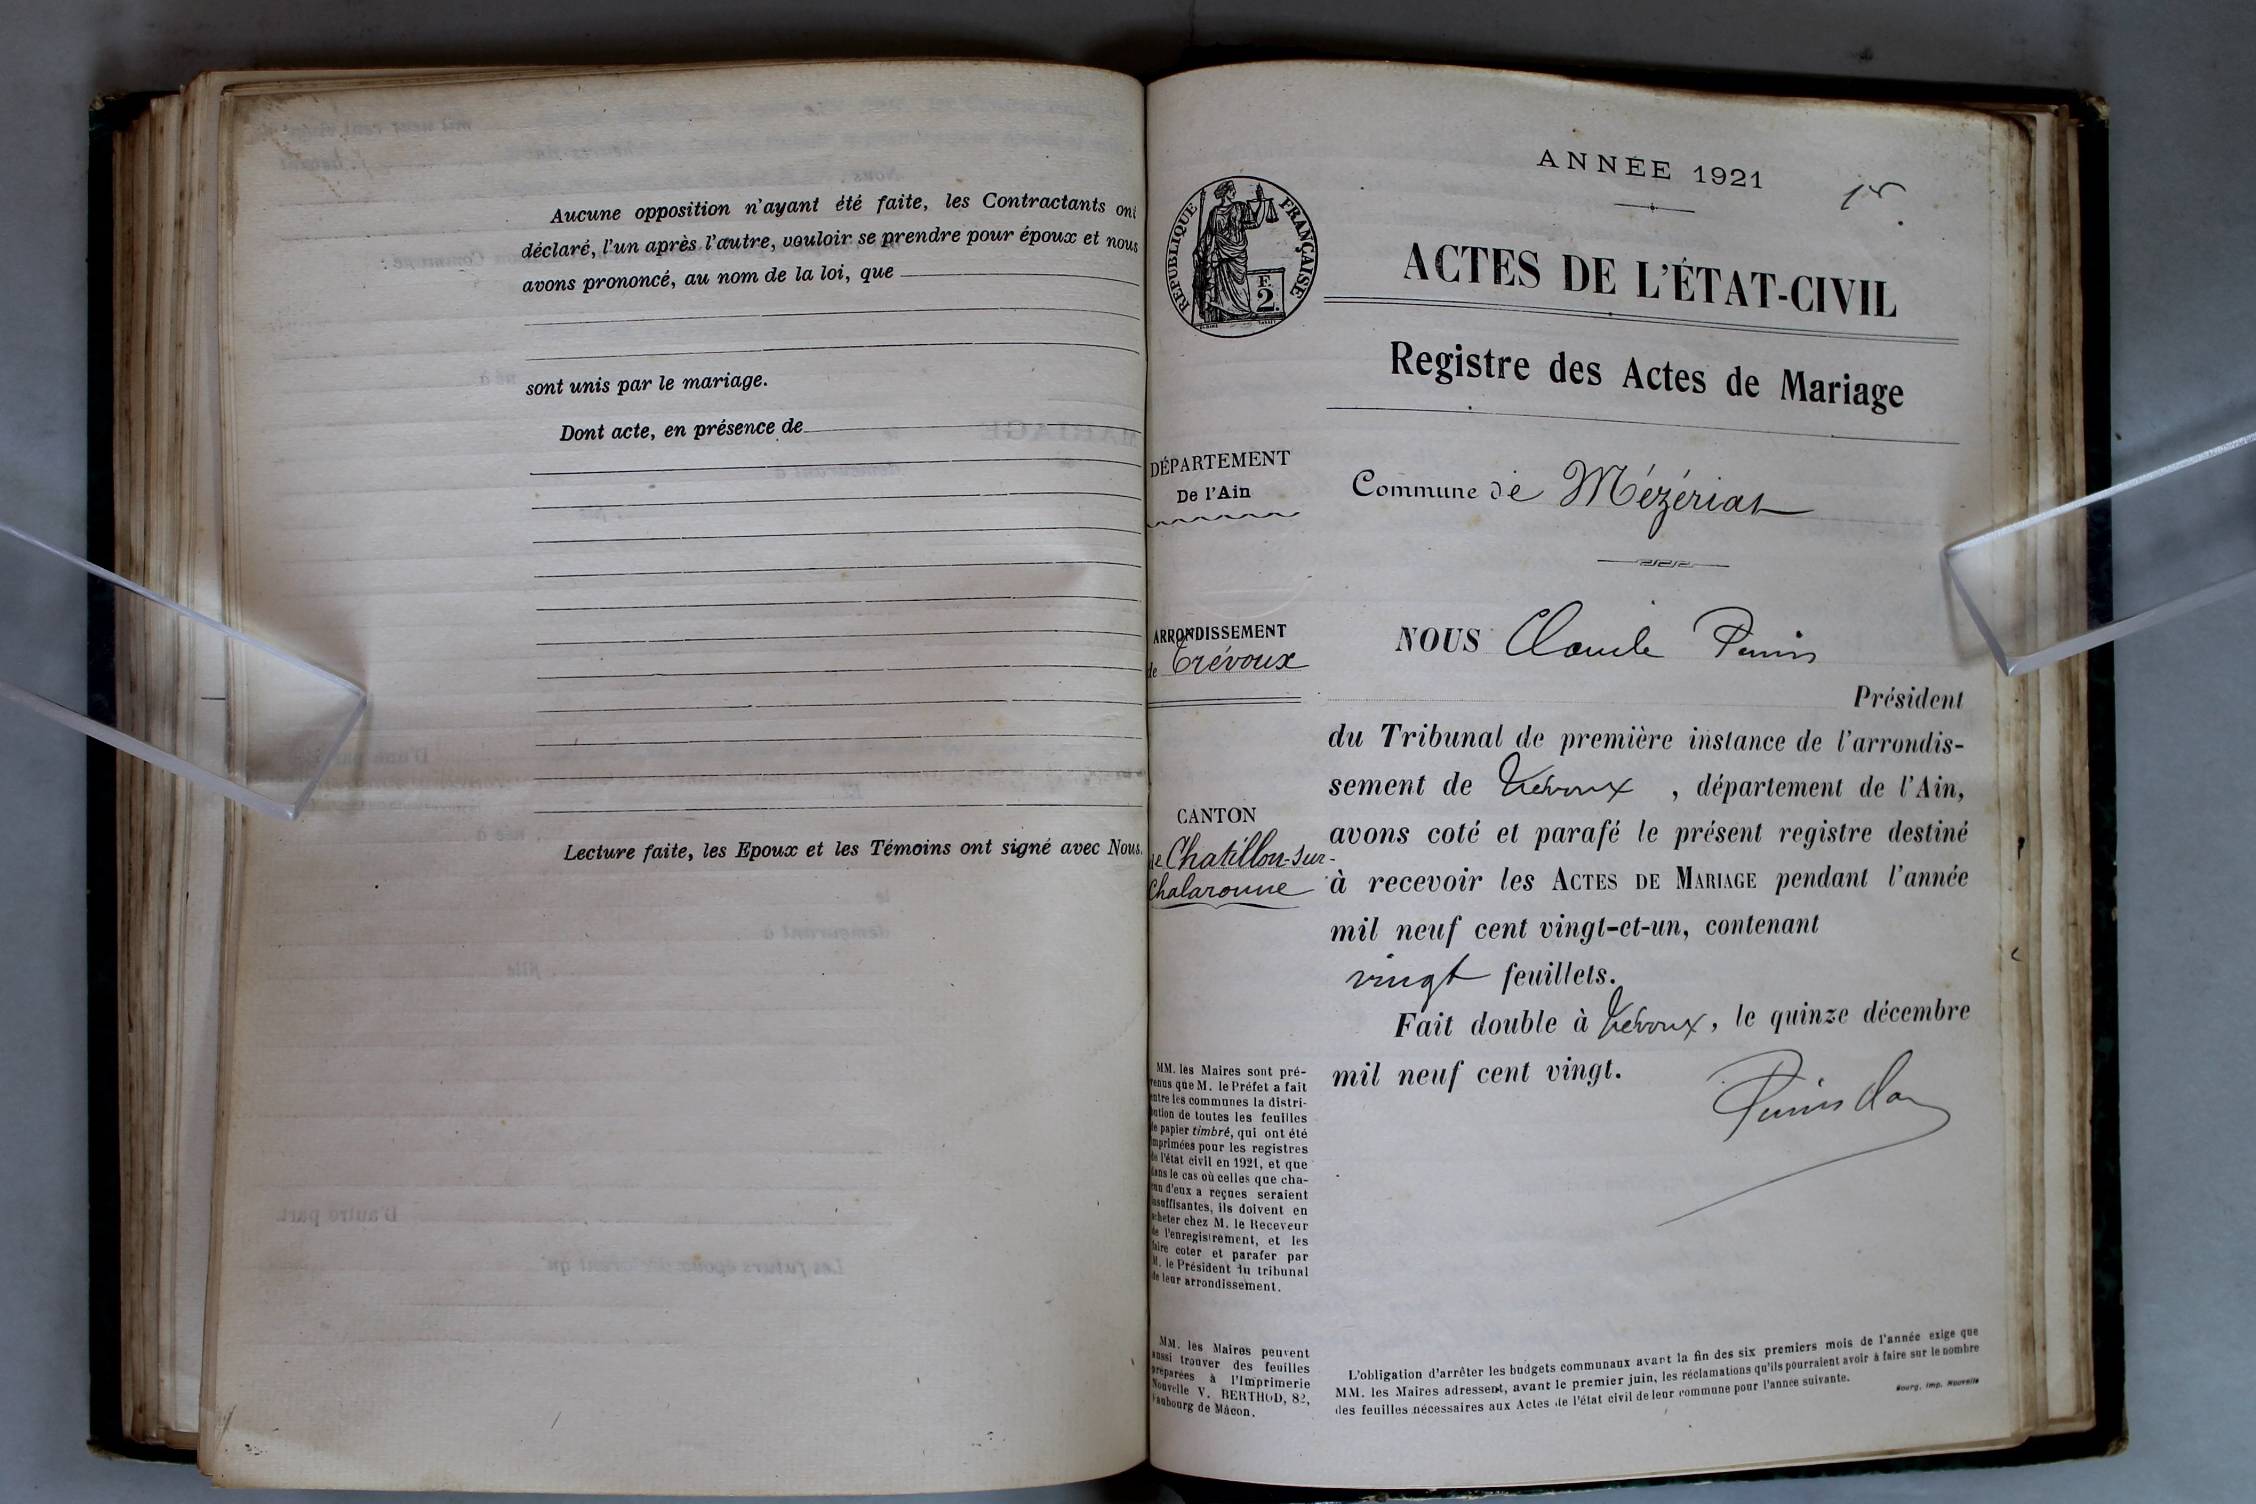 Aucune opposition n'ayant été faite, les Contractants ont
déclaré, l'un après l'autre, vouloir se prendre pour époux et nous
avons prononcé, au nom de la loi, que
sont unis par le mariage.
Dont acte, en présence de
Lecture faite, les Epoux et les Témoins ont signé avec Nous.
ANNÉE 1921
RÉPUBLIQUE FRANÇAISE
F.
2.
ACTES DE L'ÉTAT-CIVIL
Registre des Actes de Mariage
DÉPARTEMENT
De l'Ain
Commune de Mézériat
ARRONDISSEMENT
de Trévoux
CANTON
de Chatillon-sur-
Chalaronne
NOUS Claude
Président
du Tribunal de première instance de l'arrondis-
sement de Trévoux, département de l'Ain,
avons coté et parafé le présent registre destiné
à recevoir les ACTES DE MARIAGE pendant l'année
mil neuf cent vingt-et-un, contenant
vingt feuillets.
Fait double à Trévoux, le quinze décembre
mil neuf cent vingt.
MM. les Maires sont pré-
venus que M. le Préfet a fait
entre les communes la distri-
bution de toutes les feuilles
de papier timbré, qui ont été
imprimées pour les registres
de l'état civil en 1921, et que
dans le cas où celles que cha-
cun d'eux a reçues seraient
insuffisantes, ils doivent en
acheter chez M. le Receveur
de l'enregistrement, et les
faire coter et parafer par
M. le Président du tribunal
de leur arrondissement.
MM. les Maires peuvent
aussi trouver des feuilles
préparées à l'Imprimerie
Nouvelle V. BERTHOD, 82,
Faubourg de Mâcon.
L'obligation d'arrêter les budgets communaux avant la fin des six premiers mois de l'année exige que
MM. les Maires adressent, avant le premier juin, les réclamations qu'ils pourraient avoir à faire sur le nombre
des feuilles nécessaires aux Actes de l'état civil de leur commune pour l'année suivante.
Bourg, Imp. Nouvelle